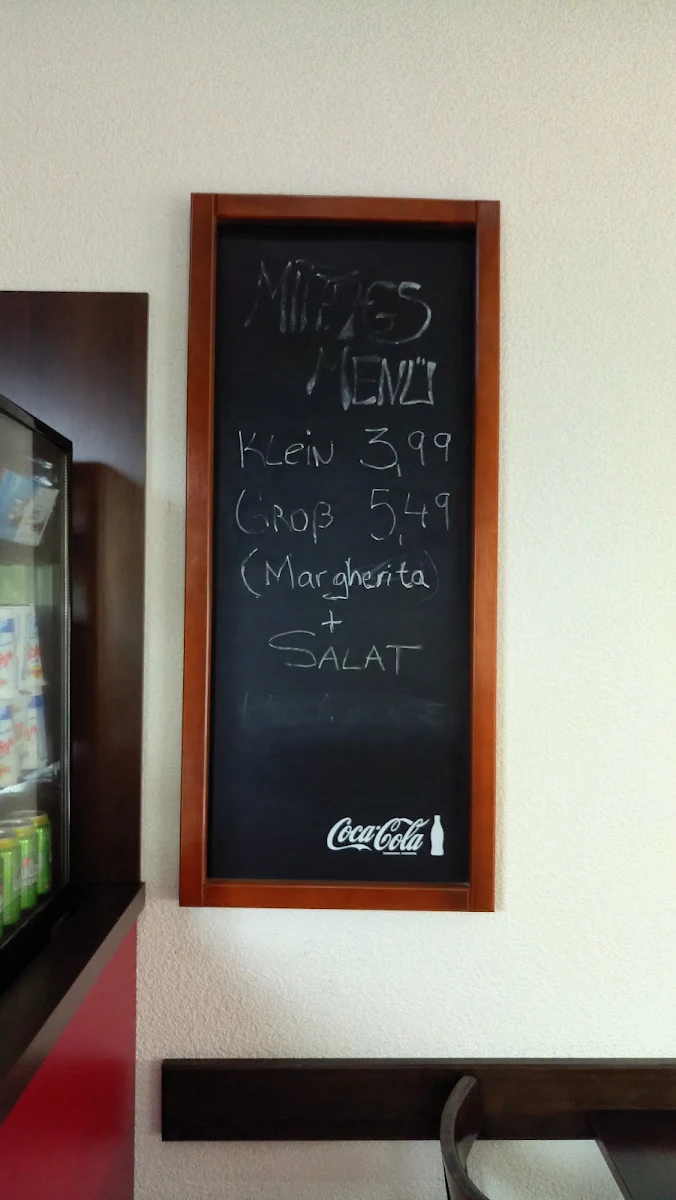 MITTAGS
MENÜ
KLEIN 3,99
GROß 5,49
(Margherita)
+
SALAT
Coca-Cola